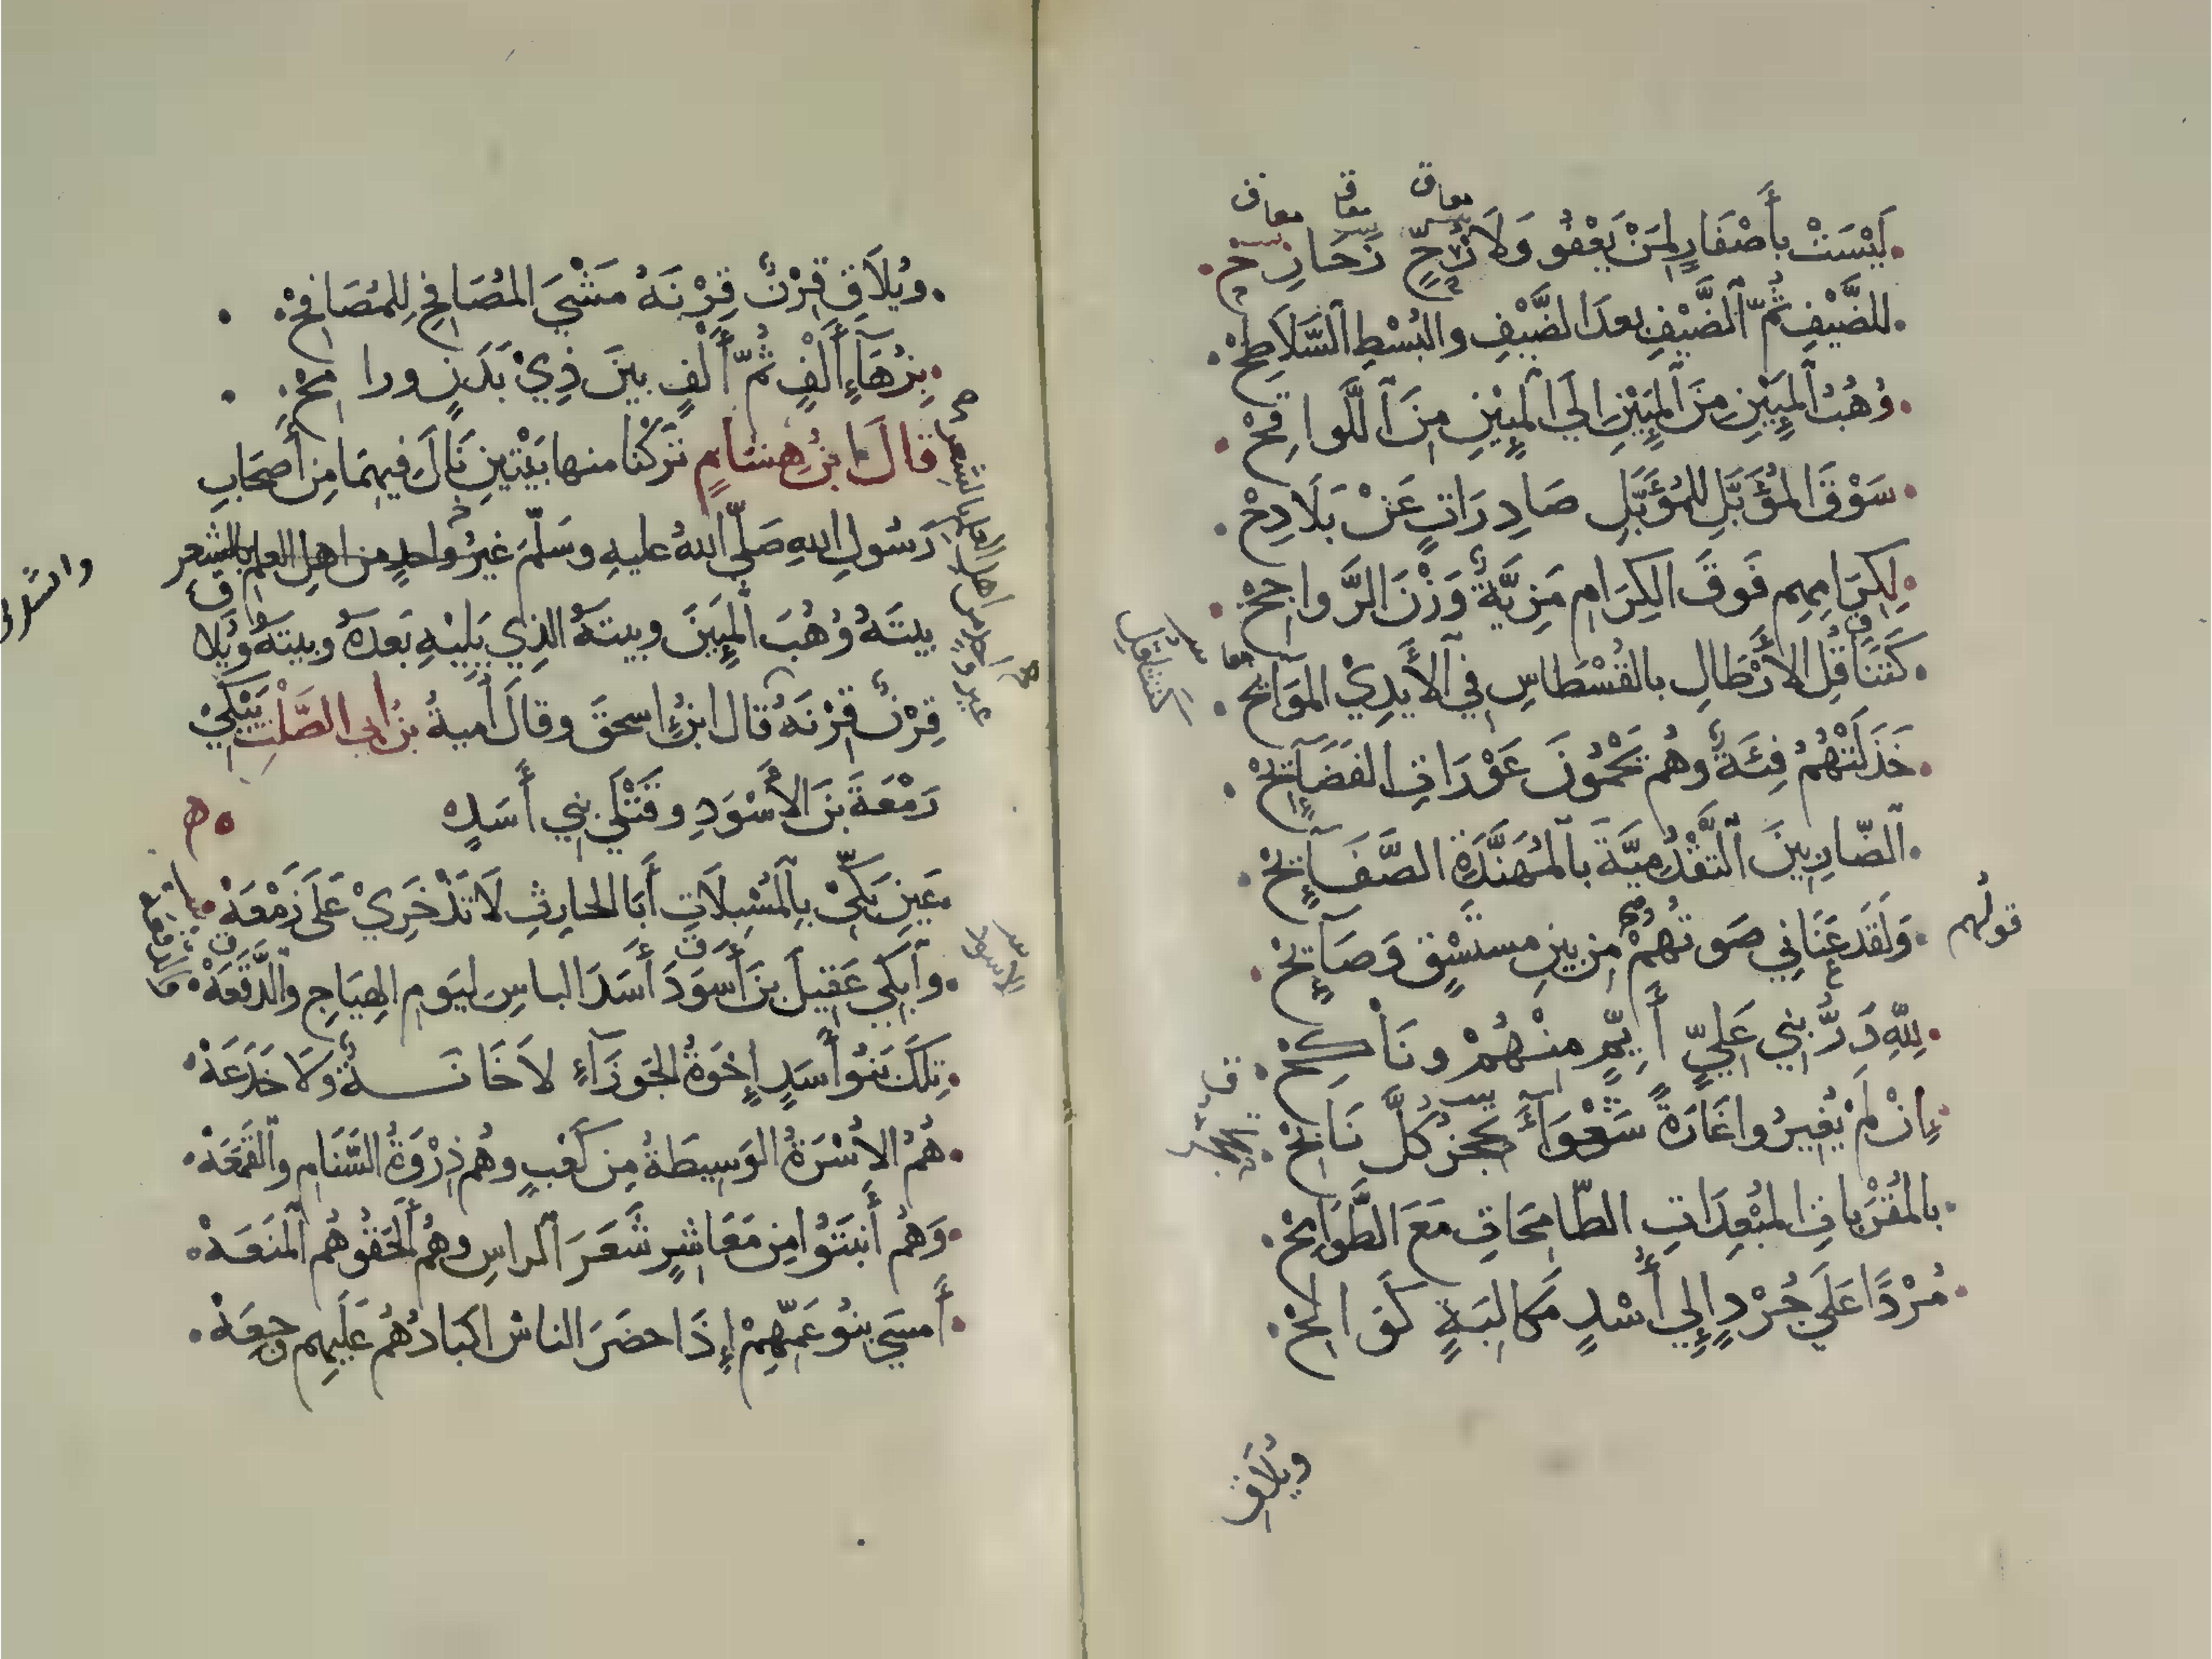 لَيْسَتْ بأَصْفَارٍ لِمَنْ يَعْفُو وَلَا رُحٍّ رَحَارِحْ
للضَّيْفِ ثُمَّ الضَّيْفِ بعدَ الضَّيْفِ والبُسْطِ السَّلَاطِحْ
وُهُبُ المِئِينَ مِنَ المِئِينَ الَي المِئِينَ مِنَ اللَّواقِحْ
سَوْقَ المُؤَبَّلِ للمُؤَبَّلِ صَادِرَاتٍ عَنْ بَلَادِحْ
لِكِرَامِهِم فَوقَ الكِرَامِ مَزِيَّةٌ وَزْنَ الرَّواجِحْ
كَتَثَاقُلِ الأَرْطَالِ بالقُسْطَاسِ فِي الأَيدِيْ المَوَائِحْ
خَذَلَتْهُمُ فِئَةٌ وهُم يَحْمُونَ عَوْرَاتِ الفَضَائِحْ
الضّارِبِينَ التَّقْدُمِيَّةَ بالمُهَنَّدَةِ الصَّفَائِحْ
وَلَقَد عَنَانِي صَوتُهُمْ مِن بينِ مستَسْقٍ وَصَائِحْ
قولهم
لِلّهِ دَرُّ بنِي عَلِيٍّ أَيِّمٍ منْهُمْ ونَاكِحْ
إِنْ لَمْ يُغِيرُوا غَارَةً شَعْوَاءَ تُجحِرُ كُلَّ نَابِحْ
بالمُقْرَبَاتِ المُبْعِدَاتِ الطّامِحَاتِ مَعَ الطَّوَامِحْ
مُرْدًا عَلَي جُرْدٍ إِلِي أُسْدٍ مَكالِبَةٍ كَوالِحْ
ويُلَاقِ
ويُلَاقِ قِرْنٌ قِرْنَهُ مَشْيَ المُصَافِحِ لِلمُصَافِحْ
بِزُهَاءِ أَلْفٍ ثُمَّ أَلْفٍ بينَ ذِيْ بَدَنٍ ورامِحْ
قالَ ابنُ هِشَامٍ تَرَكْنا منها بَيْتَينِ نَالَ فيهِمَا مِن أَصحَابِ
رَسُولِ اللهِ صَلّي اللهُ عليهِ وسَلّمَ غيرُ واحدٍ من اهلِ العلمِ بالشعر
بيتَهُ وُهُبَ المِئِينَ وبيتَهُ الذِي يَلِيْهِ بَعدَهُ وبيتَهُ ويُلاق
قِرْنٌ قِرْنَهُ قال ابنُ اسحقَ وقالَ أُميةُ بنُ ابي الصَّلْتِ يَبْكِيْ
زَمْعَةَ بنَ الأَسْوَدِ وقَتْلَي بنِي أَسَدٍ
عَينِ بَكِّيْ بِالمُسْبِلَاتِ أَبَا الحارِثِ لَا تَذْخَرِيْ عَلَى زَمْعَهْ
وابكِي عَقِيلَ بنَ أَسوَدَ أَسَدَ الباسِ ليَومِ الهِيَاجِ والدَّقَعَهْ
تِلكَ بَنُو أَسَدٍ إِخْوَةُ الجَوزَاءِ لَا خَانَةٌ ولَا خَدَعَهْ
هُمُ الأُسْرَةُ الوَسِيطَةُ مِن كَعْبٍ وهُم ذِرْوَةُ السَّنَامِ والقَمَعَهْ
وَهُم أَنبَتُوا مِن مَعَاشِرٍ شَعَرَ الراسِ وهُم أَلحَقُوهُم المَنَعَهْ
أَمسَي بنُو عَمِّهِمْ إِذَا حضَرَ الناسُ اكبادُهُم عَلَيهِم وجِعَهْ